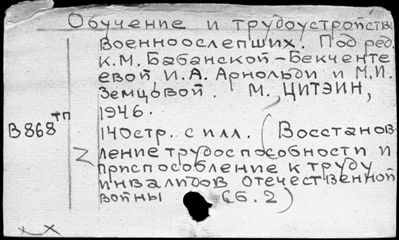 Обучение и трудоустройств
военноослепших. Под ред.
К.М. Бабанской-Бекченте
евой, И.А. Арнольди и М.И.
Земцовой. М., ЦИТЭИН,
1946.
В868 тп
140стр. с илл. (Восстанов
ление трудоспособности и
приспособление к труду
инвалидов отечественной
войны Сб. 2)